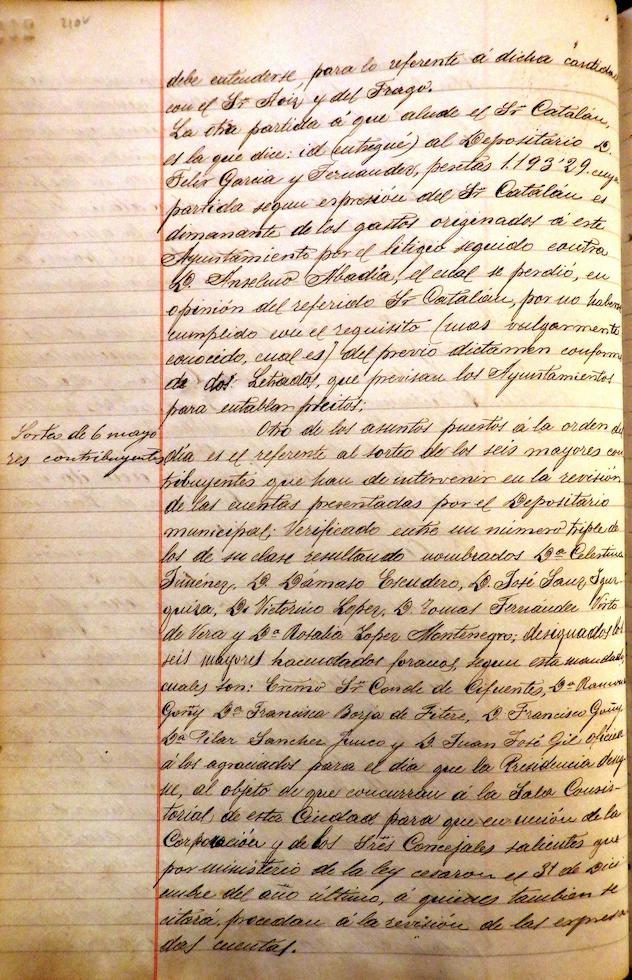 210v
debe entenderse, para lo referente á dicha cantidad
con el Sr. y del Frago.
La otra partida á que alude el Sr. Catalán,
es la que dice: id (entregué) al Depositario D.
Felix Garcia y Fernandez, pesetas 1.193'29. cuya
partida segun expresión del Sr. Catalán es
dimanante de los gastos originados á este
Ayuntamiento por el litigio seguido contra
D. Anselmo Abadía, el cual se perdió, en
opinión del referido Sr. Catalán, por no haberse
cumplido con el requisito (mas vulgarmente
conocido, cual es) del previo dictamen conforme
de dos Letrados, que precisan los Ayuntamientos
para entablar pleitos;
Sorteo de 6 mayo
res contribuyentes
Otro de los asuntos puestos á la orden del
día es el referente al sorteo de los seis mayores con
tribuyentes que han de intervenir en la revisión
de las cuentas presentadas por el Depositario
municipal; Verificado entre un número triple de
los de su clase resultando nombrados Da Celestina
Jimenez, D. Dámaso Escudero, D. José Sanz
D. Victorino Lopez, D. Tomas Fernández Vinto
de Vera y Da Rosalia Lopez Montenegro; designados los
seis mayores hacendados foraneos, segun esta mandado
cuales son: Excmo Sr. Conde de Cifuentes, Da Ramona
Goñy Da Francisca Borja de Fitero, D. Francisco Goñy
Da Pilar Sanchez y D. Juan José Gil
á los agraciados para el dia que la Presidencia desig
ne, al objeto de que concurran á la Sala Consis-
torial de esta Ciudad para que en unión de la
Corporación y de los Sres Concejales salientes que
por ministerio de la ley cesaron el 31 de Dici
embre del año último, á quienes tambien se
citará, procedan á la revisión de las expresa
das cuentas.